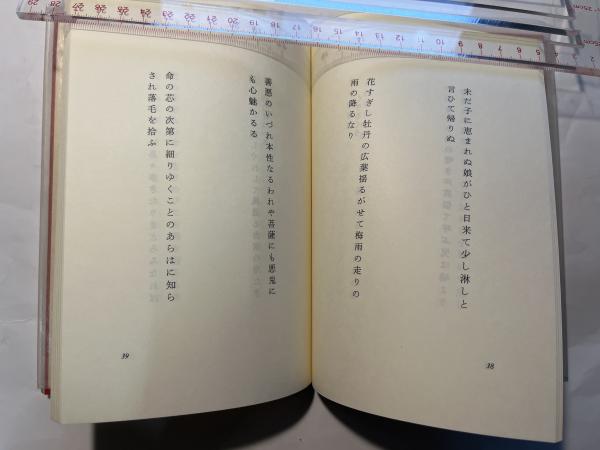 未だ子に恵まれぬ娘がひと日来て少し淋しと
言ひて帰りぬ
花すぎし牡丹の広葉揺るがせて梅雨の走りの
雨の降るなり
38
善悪のいづれ本性なるわれや菩薩にも悪鬼に
も心魅かるる
命の芯の次第に細りゆくことのあらはに知ら
され落毛を拾ふ
39
29 28 27 26 25 24 23 22 21 20 19 18 17 16 15 14 13 12 11 10 9 8 7 6 5 4 3 2 1 0